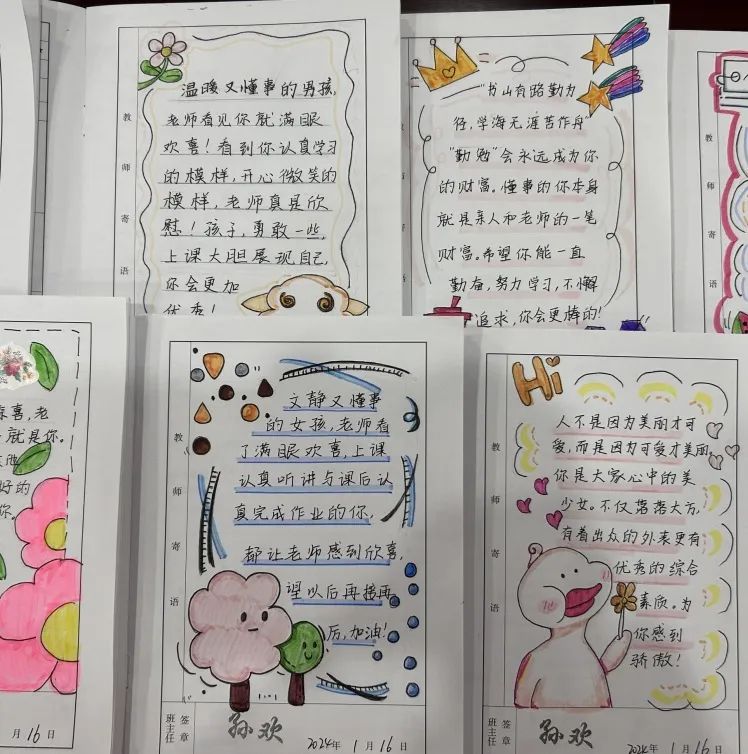 教师寄语
温暖又懂事的男孩,
老师看见你就满眼
欢喜！看到你认真学习
的模样,开心微笑的
模样,老师真是欣
慰！孩子,勇敢一些,
上课大胆展现自己,
你会更加
优秀！
教师寄语
"书山有路勤为
径,学海无涯苦作舟"
"勤勉"会永远成为你
的财富。懂事的你本身
就是亲人和老师的一笔
财富。希望你能一直
勤奋,努力学习,不懈
追求,你会更棒的!
教师寄语
喜,老
就是你。
好的
你。
月16日
教师寄语
文静又懂事
的女孩,老师看
了满眼欢喜,上课
认真听讲与课后认
真完成作业的你,
都让老师感到欣喜,
望以后再接再
后,加油!
班主任签章
孙欢
2024年1月16日
教师寄语
Hi
人不是因为美丽才可
爱,而是因为可爱才美丽。
你是大家心中的美
少女。不仅落落大方,
有着出众的外表更有
优秀的综合
素质。为
你感到
骄傲!
班主任签章
孙欢
2024年1月16日